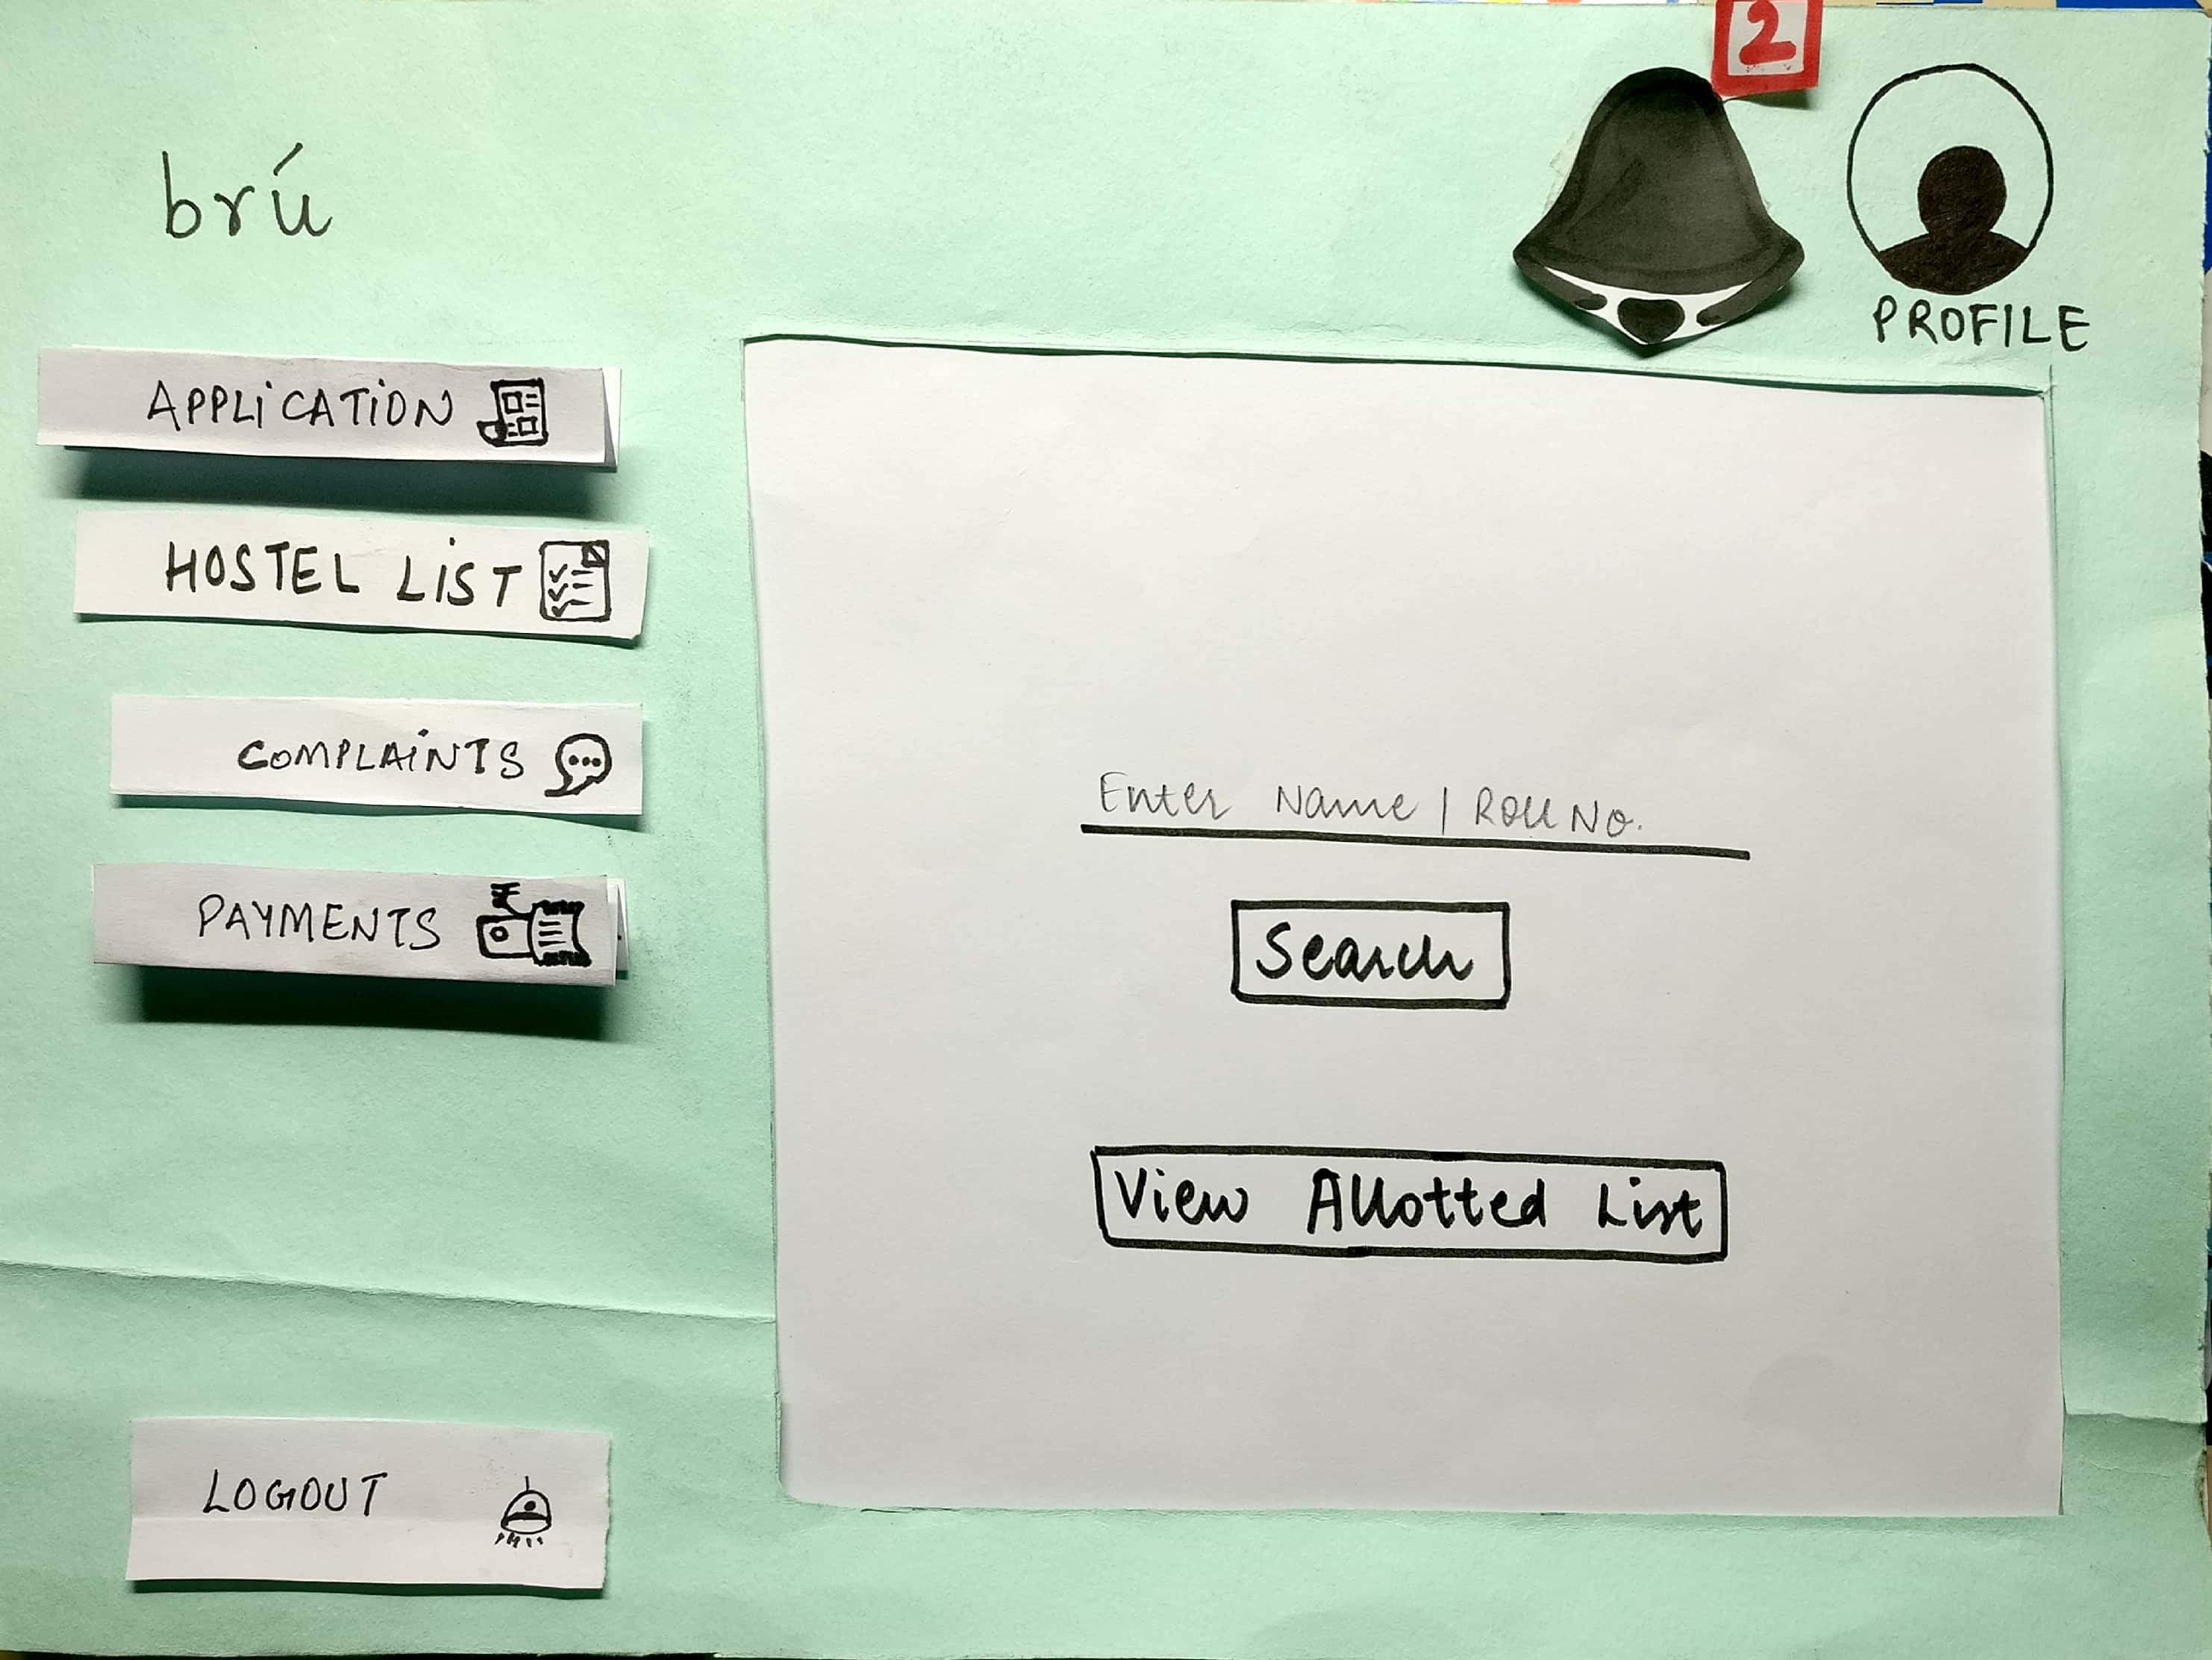 2
brú
PROFILE
APPLiCATiON
HOSTEL LiST
COMPLAiNTS
PAYMENTS
₹
LOGOUT
Enter Name | Roll No.
Search
View Allotted List